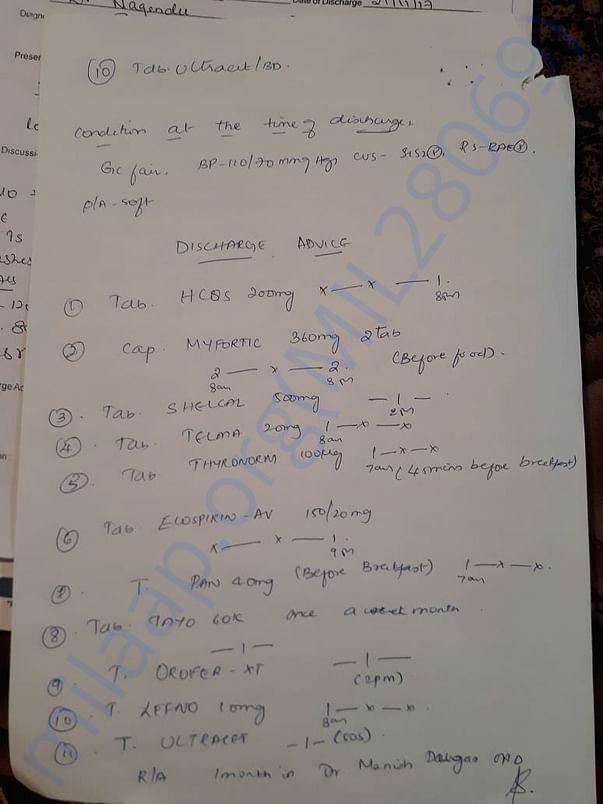 Nagendu
Date of Discharge 21/11/17
Diagn
Presen
Discussi
⑩ Tab. Ultracet/BD.
condition at the time of discharge,
GC fair. BP-110/70 mmHg, CVS- S1S2(N), RS-BAE(N).
P/A - soft
DISCHARGE ADVICE
① Tab. HCQS 200mg x — x — 1.
8pm
② Cap. MYFORTIC 360mg 2tab
2 — x — 2. (Before food).
8am 8pm
③. Tab. SHELCAL 500mg — 1 —
2pm
④. Tab. TELMA 20mg 1 — x — x
8am
⑤. Tab THYRONORM 100µg 1 — x — x
7am (45mins before breakfast)
⑥ Tab. ECOSPIRIN-AV 150/20mg
x — x — 1.
9pm
⑦. T. PAN 40mg (Before Breakfast) 1 — x — x.
7am
⑧. Tab. TAYO 60K once a month.
— 1 —
⑨ T. OROFER-XT — 1 —
(2pm)
⑩. T. LEFNO 10mg 1 — x — x.
8am
⑪ T. ULTRACET -1- (SOS).
R/A 1month in Dr Manish OPD
milaap.org(MIL28069)